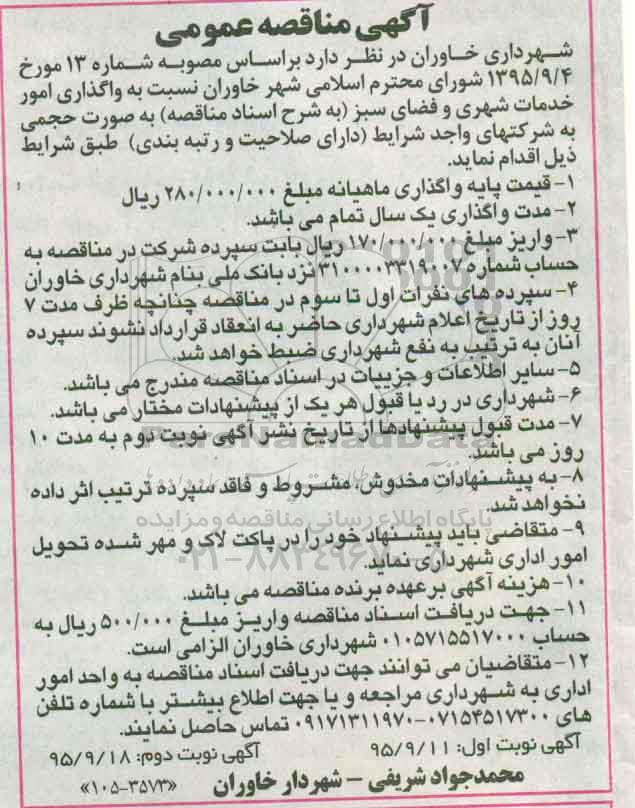 آگهی مناقصه عمومی
شهرداری خاوران در نظر دارد براساس مصوبه شماره ۱۳ مورخ
۱۳۹۵/۹/۴ شورای محترم اسلامی شهر خاوران نسبت به واگذاری امور
خدمات شهری و فضای سبز (به شرح اسناد مناقصه) به صورت حجمی
به شرکتهای واجد شرایط (دارای صلاحیت و رتبه بندی) طبق شرایط
ذیل اقدام نماید.
۱- قیمت پایه واگذاری ماهیانه مبلغ ۲۸۰/۰۰۰/۰۰۰ ریال
۲- مدت واگذاری یک سال تمام می باشد.
۳- واریز مبلغ ۱۷۰/۰۰۰/۰۰۰ ریال بابت سپرده شرکت در مناقصه به
حساب شماره ۳۱۰۰۰۰۳۳۱۹۰۰۷ نزد بانک ملی بنام شهرداری خاوران
۴- سپرده های نفرات اول تا سوم در مناقصه چنانچه ظرف مدت ۷
روز از تاریخ اعلام شهرداری حاضر به انعقاد قرارداد نشوند سپرده
آنان به ترتیب به نفع شهرداری ضبط خواهد شد.
۵- سایر اطلاعات و جزییات در اسناد مناقصه مندرج می باشد.
۶- شهرداری در رد یا قبول هر یک از پیشنهادات مختار می باشد.
۷- مدت قبول پیشنهادها از تاریخ نشر آگهی نوبت دوم به مدت ۱۰
روز می باشد.
۸- به پیشنهادات مخدوش، مشروط و فاقد سپرده ترتیب اثر داده
نخواهد شد.
پایگاه اطلاع رسانی مناقصه و مزایده
۹- متقاضی باید پیشنهاد خود را در پاکت لاک و مهر شده تحویل
امور اداری شهرداری نماید.
۱۰- هزینه آگهی برعهده برنده مناقصه می باشد.
۱۱- جهت دریافت اسناد مناقصه واریز مبلغ ۵۰۰/۰۰۰ ریال به
حساب ۰۱۰۵۷۱۵۵۱۷۰۰۰ شهرداری خاوران الزامی است.
۱۲- متقاضیان می توانند جهت دریافت اسناد مناقصه به واحد امور
اداری به شهرداری مراجعه و یا جهت اطلاع بیشتر با شماره تلفن
های ۰۷۱۵۴۵۱۷۳۰۰-۰۹۱۷۱۳۱۱۹۷۰ تماس حاصل نمایند.
آگهی نوبت اول: ۹۵/۹/۱۱ آگهی نوبت دوم: ۹۵/۹/۱۸
محمدجواد شریفی - شهردار خاوران «۱۰۵-۳۵۷۳»